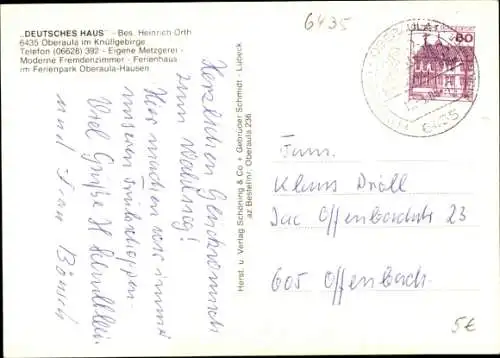 „DEUTSCHES HAUS" - Bes. Heinrich Orth
6435 Oberaula im Knüllgebirge
Telefon (06628) 392 - Eigene Metzgerei -
Moderne Fremdenzimmer - Ferienhaus
im Ferienpark Oberaula-Hausen
Herzlichen Glückwunsch
zum Wahlsieg!
Hier machen wir immer
unseren Frühschoppen.
Viel Grüße H
und Frau
Herst. u. Verlag Schöning & Co + Gebrüder Schmidt - Lübeck
az Bestellnr. Oberaula 236
6435
OBERAULA
6435
60
Fam.
Klaus Dröll
Jac Offenbachstr 23
605 Offenbach
5€